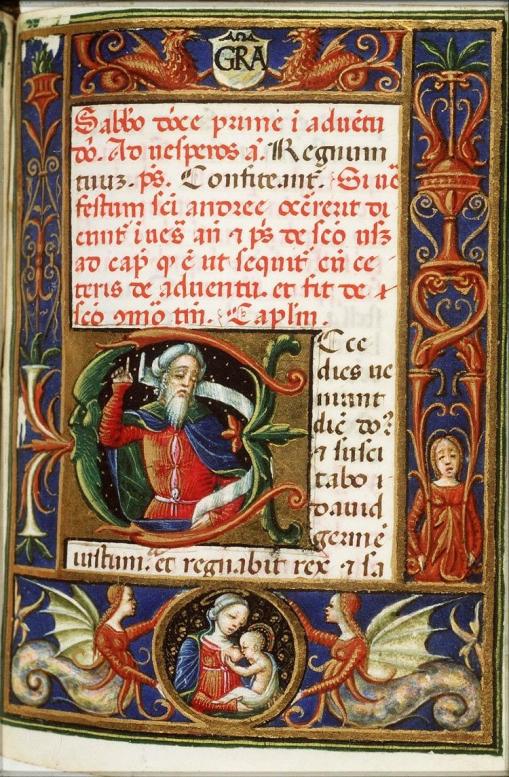 GRA
Sabbo dñce prime i aduẽtu
dõ. Ad uesperos a. Regnum
tuuz. ps. Confiteant. Si uẽ
festum sci andree ocẽrerit di
cunt i ues añ ⁊ ps de scõ usz
ad cap qͥ ẽ ut sequit cũ ce
teris de aduentu. et fit de
scõ ɔmõ tm. Caplm.
Ecce
dies ue
niunt
dic̃ dõ?
⁊ susci
tabo
dauid
germẽ
iustum. et regnabit rex ⁊ sa